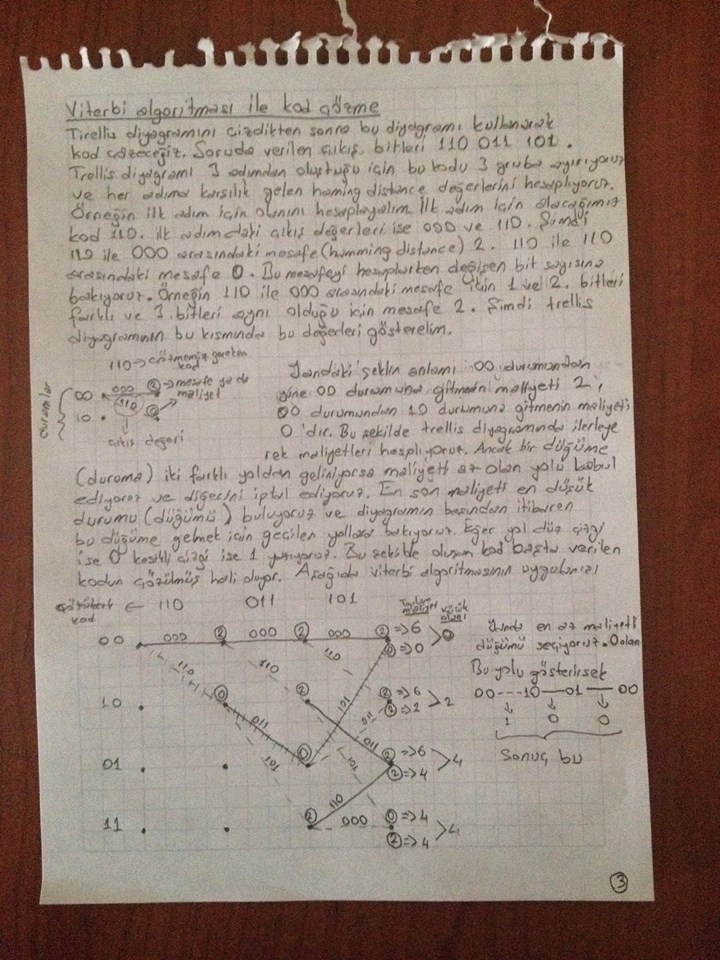 Viterbi algoritması ile kod çözme
Tirellis diyagramını çizdikten sonra bu diyagramı kullanarak
kod çözeceğiz. Soruda verilen çıkış bitleri 110 011 101.
Trellis diyagramı 3 adımdan oluştuğu için bu kodu 3 gruba ayırıyoruz
ve her adıma karşılık gelen haming distance değerlerini hesaplıyoruz.
Örneğin ilk adım için olanını hesaplayalım. İlk adım için alacağımız
kod 110. ilk adımdaki çıkış değerleri ise 000 ve 110. Şimdi
110 ile 000 arasındaki mesafe (humming distance) 2. 110 ile 110
arasındaki mesafe 0. Bu mesafeyi hesaplarken değişen bit sayısına
bakıyoruz. Örneğin 110 ile 000 arasındaki mesafe için 1 ve 2. bitleri
farklı ve 3. bitleri aynı olduğu için mesafe 2. Şimdi trellis
diyagramının bu kısmında bu değerleri gösterelim.
110 → çözmemiz gereken
kod
durumlar
00 000 2 → mesafe ya da
maliyet
10 110 0
çıkış değeri
Yandaki şeklin anlamı 00 durumundan
yine 00 durumuna gitmenin maliyeti 2,
00 durumundan 10 durumuna gitmenin maliyeti
0'dır. Bu şekilde trellis diyagramında ilerleye
rek maliyetleri hesplıyoruz. Ancak bir düğüme
(duruma) iki farklı yoldan geliniyorsa maliyeti az olan yolu kabul
ediyoruz ve diğerini iptal ediyoruz. En son maliyeti en düşük
durumu (düğümü) buluyoruz ve diyagramın başından itibaren
bu düğüme gelmek için geçilen yollara bakıyoruz. Eğer yol düz çizgi
ise 0 kesikli çizgi ise 1 yazıyoruz. Bu şekilde oluşan kod başta verilen
kodun çözülmüş hali oluyor. Aşağıda viterbi algoritmasının uygulanışı
kod ← 110 011 101
Toplam maliyet
küçük olanı
00 000 2 000 2 000 2 ⇒ 6 > 0
0 ⇒ 0
110 110 110
10 0 2 2 ⇒ 6 > 2
2 ⇒ 2
011 101 011 011
01 0 2 ⇒ 6 > 4
2 ⇒ 4
101 101 110
11 2 000 0 ⇒ 4 > 4
2 ⇒ 4
Yanda en az maliyetli
düğümü seçiyoruz. 0 olan
Bu yolu gösterirsek
00 --- 10 — 01 — 00
↓ ↓ ↓
1 0 0
Sonuç bu
3